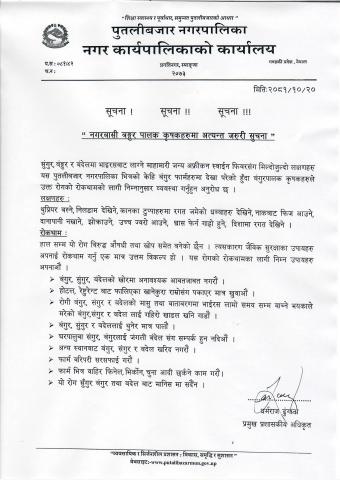 "शिक्षा स्वास्थ्य र पूर्वाधार, समुन्नत पुतलीबजारको आधार"
पुतलीबजार नगरपालिका
नगर कार्यपालिकाको कार्यालय
प.सं.:०८१/८२
च.नं.:
प्रगतिनगर, स्याङ्जा
२०७३
गण्डकी प्रदेश, नेपाल
मितिः२०८१/१०/२०
सूचना ! सूचना !! सूचना !!!
" नगरवासी बङ्गुर पालक कृषकहरुमा अत्यन्त जरुरी सूचना "
सुंगुर,बङ्गुर र बंदेलमा भाइरसबाट लाग्ने माहामारी जन्य अफ्रीकन स्वाईन फिवरसंग मिल्दोजुल्दो लक्षणहरु
यस पुतलीबजार नगरपालिका भित्रको केहि बंगुर फार्महरुमा देखा परेको हुँदा बंगुरपालक कृषकहरुले
उक्त रोगको रोकथामको लागी निम्नानुसार व्यवस्था गर्नुहुन अनुरोध छ ।
लक्षणहरु :
थुप्रिएर बस्ने, निलडाम देखिने,कानका टुप्पाहरुमा रगत जमेको धब्बाहरु देखिने,नाकबाट फिज आउने,
दानापानी नखाने, झोक्राउने, उच्च ज्वरो आउने, श्वास फेर्न गाह्रो हुने, दिशामा रगत देखिने ।
रोकथाम:
हाल सम्म यो रोग बिरुद्ध औषधी तथा खोप समेत बनेको छैन । त्यसकारण जैविक सुरक्षाका उपायहरु
अपनाई रोकथाम गर्नु एक मात्र उत्तम विकल्प हो । यस रोगको रोकथामको लागी निम्न उपायहरु
अपनाऔं ।
➢ बंगुर, सुंगुर, बंदेलको खोरमा अनावश्यक आवतजावत नगरौं ।
➢ होटल, रेष्टुरेन्ट बाट फालिएका खानेकुरा राम्रोसंग पकाएर मात्र खुवाऔं ।
➢ रोगी बंगुर, सुंगुर र बंदेलको मासु तथा वातावरणमा भाईरस लामो समय सम्म बाच्ने भएकाले
मरेको बंगुर,सुंगुर र बंदेल लाई गहिरो खाडल खनि गाडौं ।
➢ बंगुर, सुंगुर र बंदेललाई थुनेर मात्र पालौं ।
➢ घरपालुवा सुंगुर, बंगुरलाई जंगली बंदेल संग सम्पर्क हुन नदिऔं ।
➢ अन्य स्थानबाट बंगुर, सुंगुर र बंदेल खरिद नगरौं ।
➢ फार्म वरिपरी सरसफाई गरौं ।
➢ फार्म भित्र बाहिर फिनेल,भिर्कोन,चुना आदी छर्कने काम गरौं ।
➢ यो रोग सुँगुर बंगुर तथा बंदेल बाट मानिस मा सर्दैन ।
प्रमुख प्रशासकीय अधिकृत
"व्यवसायिक र सिर्जनशील प्रशासन : विकास, समृद्धि र सुशासन"
वेबसाइट:-www.putalibazarmun.gov.np